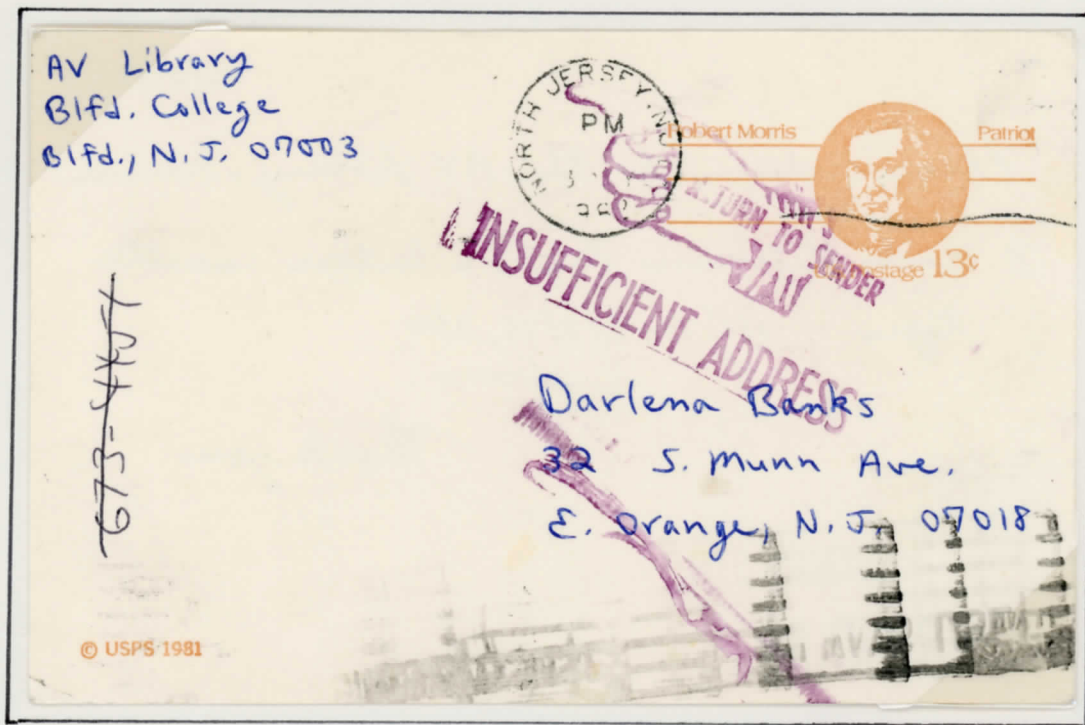 AV Library
Blfd. College
Blfd., N.J. 07003
NORTH JERSEY, N.J.
PM
Robert Morris Patriot
RETURN TO SENDER
Postage 13¢
INSUFFICIENT ADDRESS
Darlena Banks
32 S. Munn Ave.
E. Orange, N.J. 07018
© USPS 1981